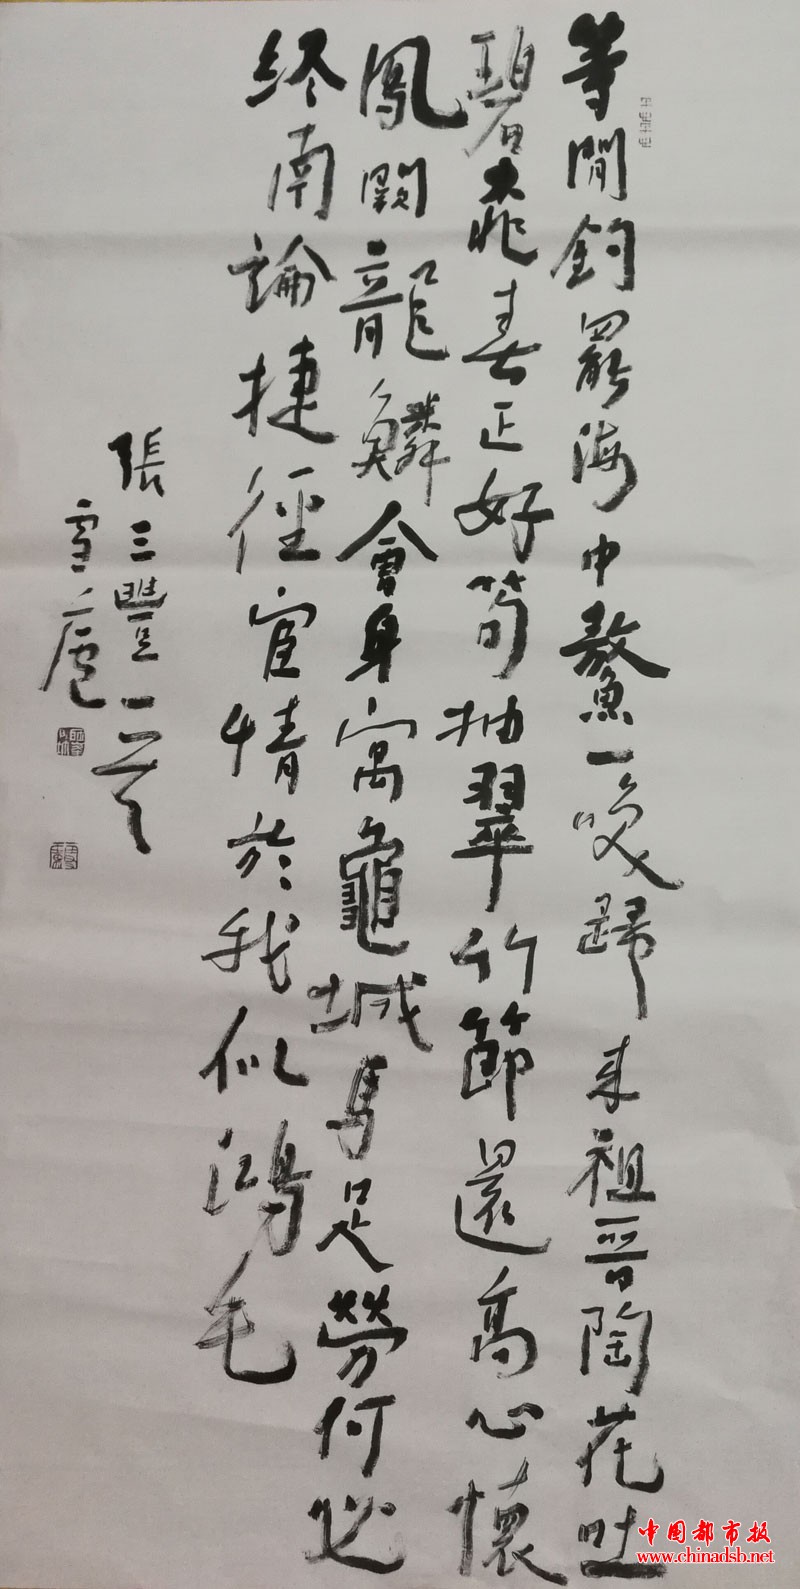 等閒釣罷海中鰲一嘆歸来祖晉陶花吐
碧桃春正好筍抽翠竹節還高心懷
鳳闕龍鱗會身寓龜城馬足勞何必
終南論捷徑宦情於我似鴻毛
張三豐
雪廬
中国都市报
www.chinadsb.net